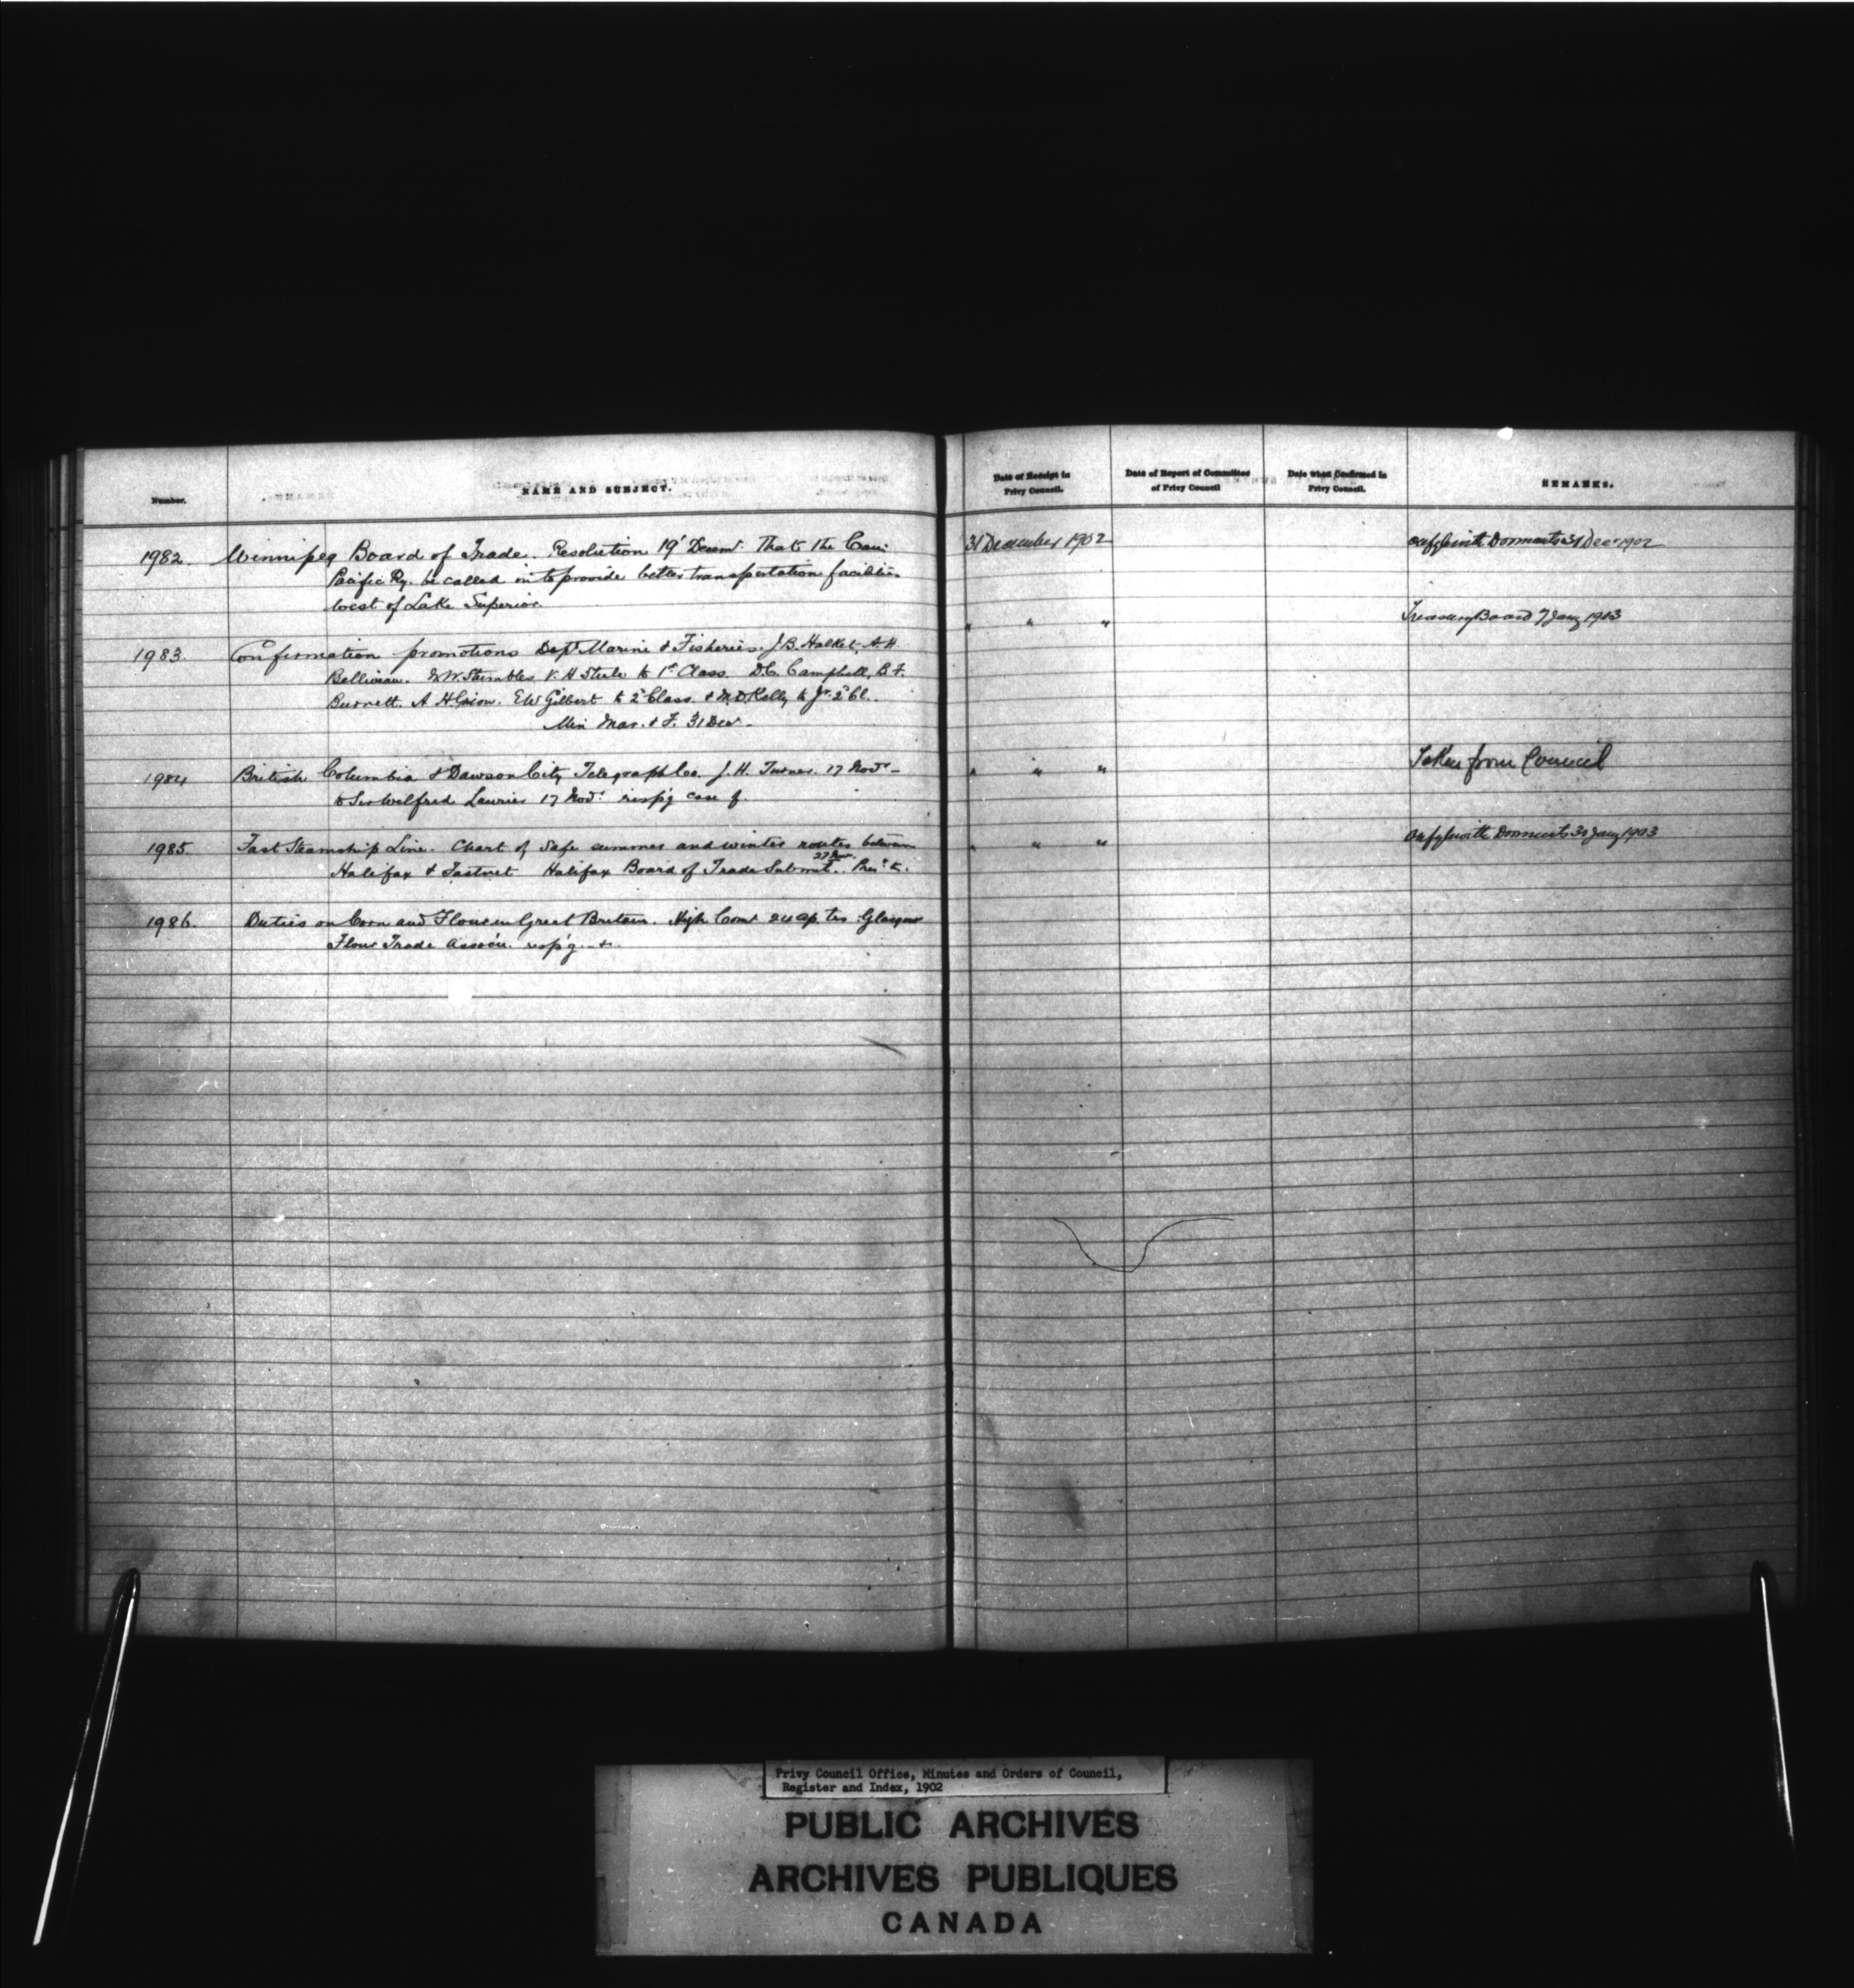 Number.
NAME AND SUBJECT.
Date of Receipt in
Privy Council.
Date of Report of Committee
of Privy Council
Date when Confirmed in
Privy Council.
REMARKS.
1982. Winnipeg Board of Trade. Resolution 19' Decemr. That the Can:
Pacific Ry. be called on to provide better transportation facilities
West of Lake Superior.
31 December 1902
31 Decr 1902
1983. Confirmation promotions Dept Marine & Fisheries. J.B. Halket, A.H.
Belliveau. W.W. Stumbles V.H. Steele to 1st Class. D.C. Campbell, B.F.
Burnett. A. H. E.W. Gilbert to 2d Class. & M.D. Kelly to Jr. 2d Cl.
Min Mar. & F. 31 Decr.
" " "
Treasury Board 7 Jany 1903
1984 British Columbia & Dawson City Telegraph Co. J.H. Turner. 17 Novr -
to Sir Wilfred Laurier 17 Novr resp'g case of.
" " "
Taken from Council
1985. Fast Steamship Line. Chart of Safe summer and winter routes between
Halifax & Fastnet Halifax Board of Trade Submit.
" " "
30 Jany 1903
1986. Duties on Corn and Flour in Great Britain. High Comr 24 Ap. Glasgow
Flour Trade Assoc'n. resp'g. &.
Privy Council Office, Minutes and Orders of Council,
Register and Index, 1902
PUBLIC ARCHIVES
ARCHIVES PUBLIQUES
CANADA